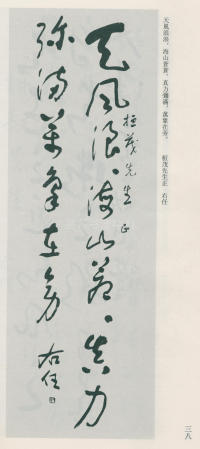 天風浪浪，海山蒼蒼。真力彌滿，萬象在旁。　桓茂先生正　右任
天風浪〻海山蒼〻真力
桓茂先生正
彌滿萬象在旁
右任
三八